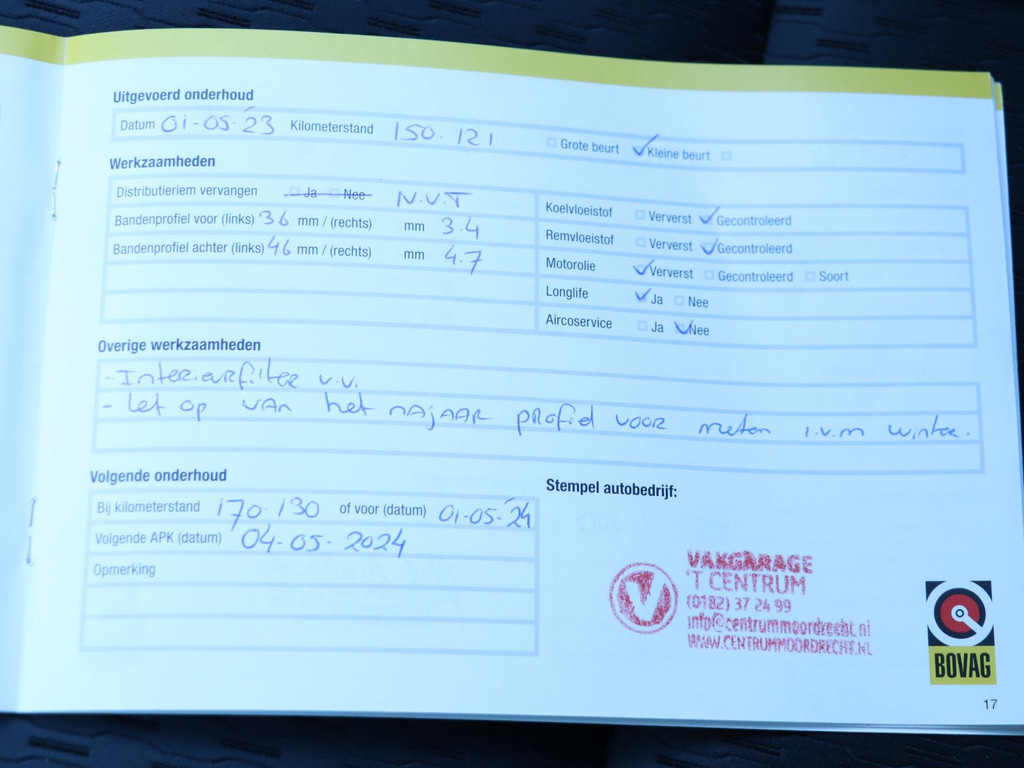 Uitgevoerd onderhoud
Datum 01-05-'23 Kilometerstand 150.121 Grote beurt Kleine beurt
Werkzaamheden
Distributieriem vervangen Ja Nee N.V.T
Bandenprofiel voor (links) 3.6 mm / (rechts) mm 3.4
Bandenprofiel achter (links) 4.6 mm / (rechts) mm 4.7
Koelvloeistof Ververst Gecontroleerd
Remvloeistof Ververst Gecontroleerd
Motorolie Ververst Gecontroleerd Soort
Longlife Ja Nee
Aircoservice Ja Nee
Overige werkzaamheden
- Interieurfilter v.v.
- Let op van het najaar profiel voor meten i.v.m winter.
Volgende onderhoud
Bij kilometerstand 170.130 of voor (datum) 01-05-'24
Volgende APK (datum) 04-05-2024
Opmerking
Stempel autobedrijf:
VAKGARAGE
'T CENTRUM
(0182) 37 24 99
info@centrummoordrecht.nl
WWW.CENTRUMMOORDRECHT.NL
BOVAG
17